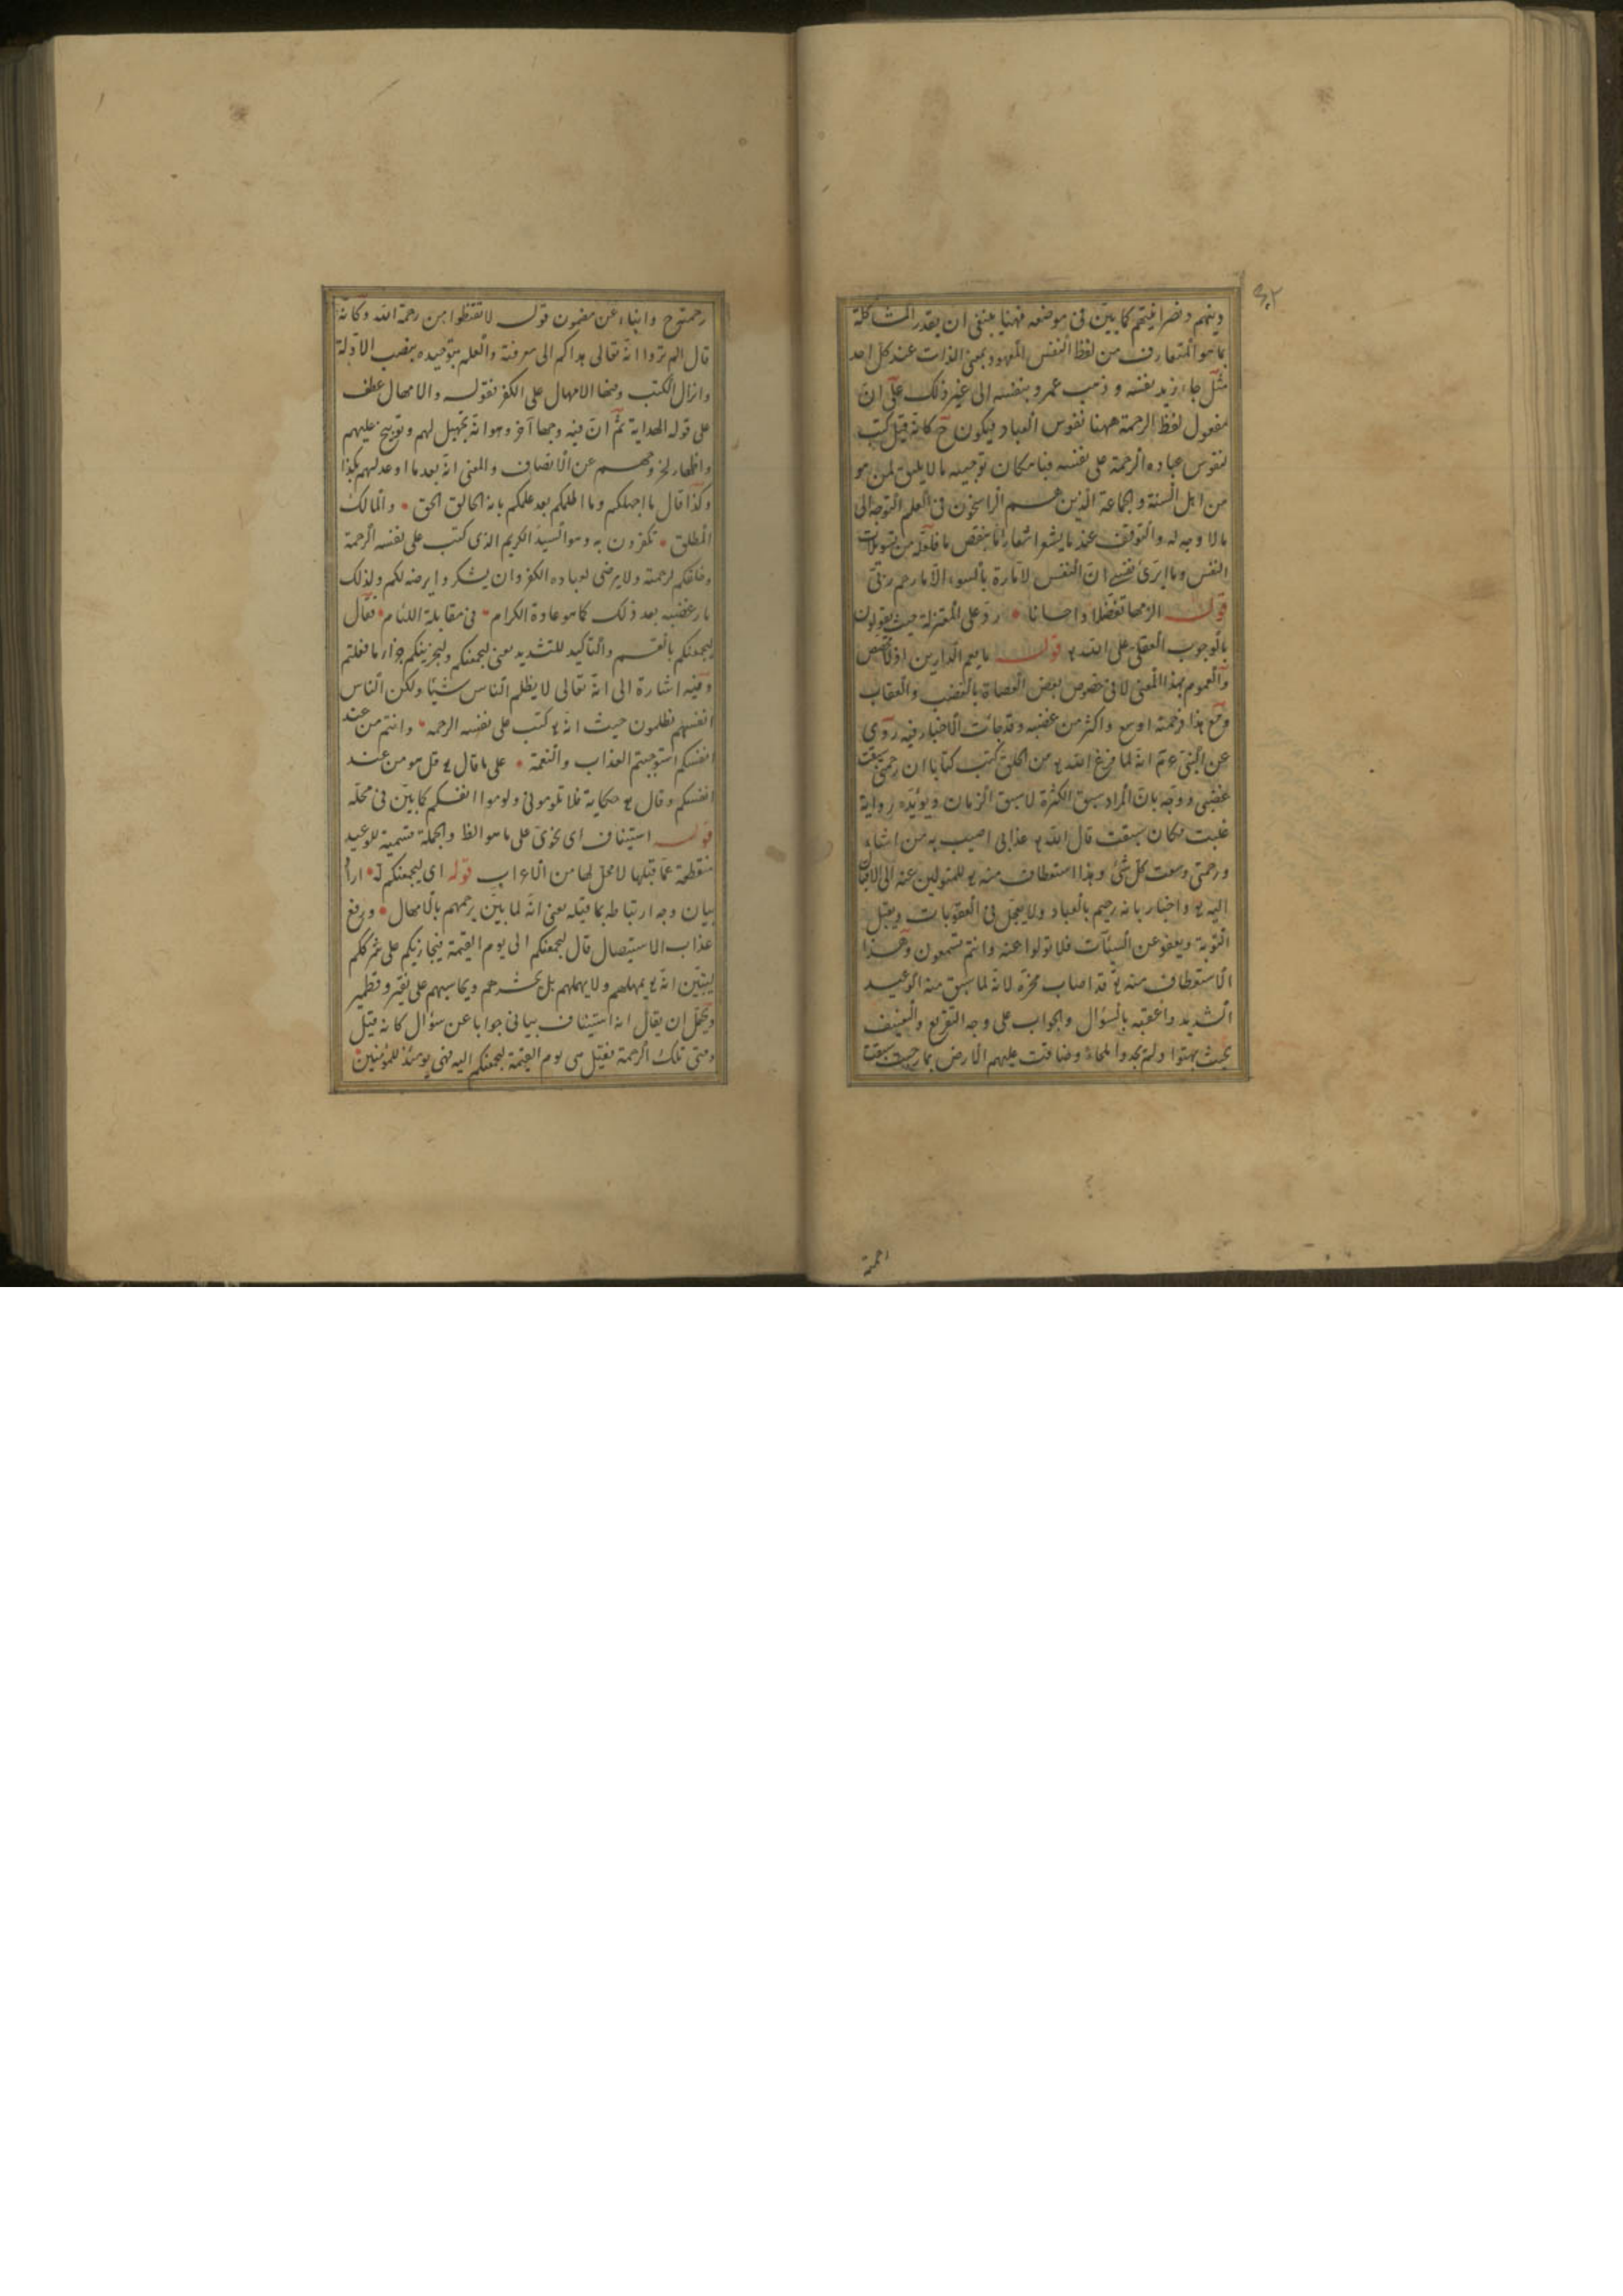 دينهم ونصرانيتهم كما بيّن في موضعه فههنا ينبغي ان يقدر المشاكلة
بما هو المتعارف من لفظ النفس المعهود بمعنى الذات عند كل احد
مثل جاء زيد بنفسه و ذهب عمرو بنفسه الى غير ذلك على ان
مفعول لفظ الرحمة ههنا نفوس العباد فيكون ح كانه قيل كتب
لنفوس عباده الرحمة على نفسه فبامكان توجيهه ما لا يليق لمن هو
من اهل السنة والجماعة الذين هم الراسخون في العلم التوجه الى
ما لا وجه له والتوقف عند ما يشعر اشعارا ما بنقص ما قلته من تسويلات
النفس وما ابرئ نفسي ان النفس لامارة بالسوء الا ما رحم ربي
قوله الزمها تفضلا واحسانا رد على المعتزلة حيث يقولون
بالوجوب العقلي على الله تع قوله ما يعم الدارين اذ لا مخصص
والعموم بهذا المعنى لا في خصوص بعض العصاة بالغضب والعقاب
ومع هذا فرحمته اوسع واكثر من غضبه وقد جائت الاخبار فيه روى
عن النبي ع م انه لما فرغ الله تع من الخلق كتب كتابا ان رحمتي سبقت
غضبي ووجه بان المراد سبق الكثرة لا سبق الزمان ويؤيده رواية
غلبت مكان سبقت قال الله تع عذابي اصيب به من اشاء
ورحمتي وسعت كل شئ وهذا استعطاف منه تع للمتولين عنه الى الاقبال
اليه تع واخبار بانه رحيم بالعباد ولا يعجل في العقوبات ويقبل
التوبة ويعفو عن السيئات فلا تولوا عنه وانتم تسمعون وهذا
الاستعطاف منه تع قد اصاب محزه لانه لما سبق منه الوعيد
الشديد واعقبه بالسؤال والجواب على وجه التقريع والتعنيف
بحيث بهتوا ولم يجدوا ملجاء وضاقت عليهم الارض بما رحبت سبقت
رحمتوح وانباء عن مضمون قوله لا تقنطوا من رحمة الله وكانه
قال الم تروا انه تعالى هداكم الى معرفته والعلم بتوحيده بنصب الادلة
وانزال الكتب وضما الامهال على الكفر فقوله والامهال عطف
على قوله الهداية ثم ان فيه وجها آخر وهو انه تجهيل لهم وتوبيخ عليهم
واظهار لخروجهم عن الانصاف والمعنى انه بعد ما اوعد لهم بكذا
وكذا قال ما اجهلكم وما اظلمكم بعد علمكم بانه الخالق الحق والمالك
المطلق تكفرون به وهو السيد الكريم الذي كتب على نفسه الرحمة
وخلقكم لرحمته ولا يرضى لعباده الكفر وان يشكروا يرضه لكم ولذلك
بارغضبه بعد ذلك كما هو عادة الكرام في مقابلة اللئام فقال
ليجمعنكم بالقسم والتاكيد للتشديد يعني ليجمعنكم وليجزينكم جزاء ما فعلتم
وفيه اشارة الى انه تعالى لا يظلم الناس شيئا ولكن الناس
انفسهم يظلمون حيث انه تع كتب على نفسه الرحمه وانتم من عند
انفسكم استوجبتم العذاب والنقمة على ما قال تع قل هو من عند
انفسكم وقال تع حكاية فلا تلوموني ولوموا انفسكم كما بيّن في محله
قوله استيناف اى نحوى على ما هو الظ والجملة قسمية للوعيد
منقطعة عما قبلها لا محل لها من الاعراب قوله اى ليجمعنكم آه اراد
بيان وجه ارتباطه بما قبله يعني انه لما بيّن يرحمهم بالامهال ورفع
عذاب الاستيصال قال ليجمعنكم الى يوم القيمة فيجازيكم على شرككم
ليتبين انه تع يمهلهم ولا يهملهم بل يحشرهم ويحاسبهم على نقير وقطمير
ويحتمل ان يقال انه استيناف بياني جوابا عن سؤال كانه قيل
ومتى تلك الرحمة فقيل هى يوم القيمة ليجمعنكم اليه فهى يومئذ للمؤمنين